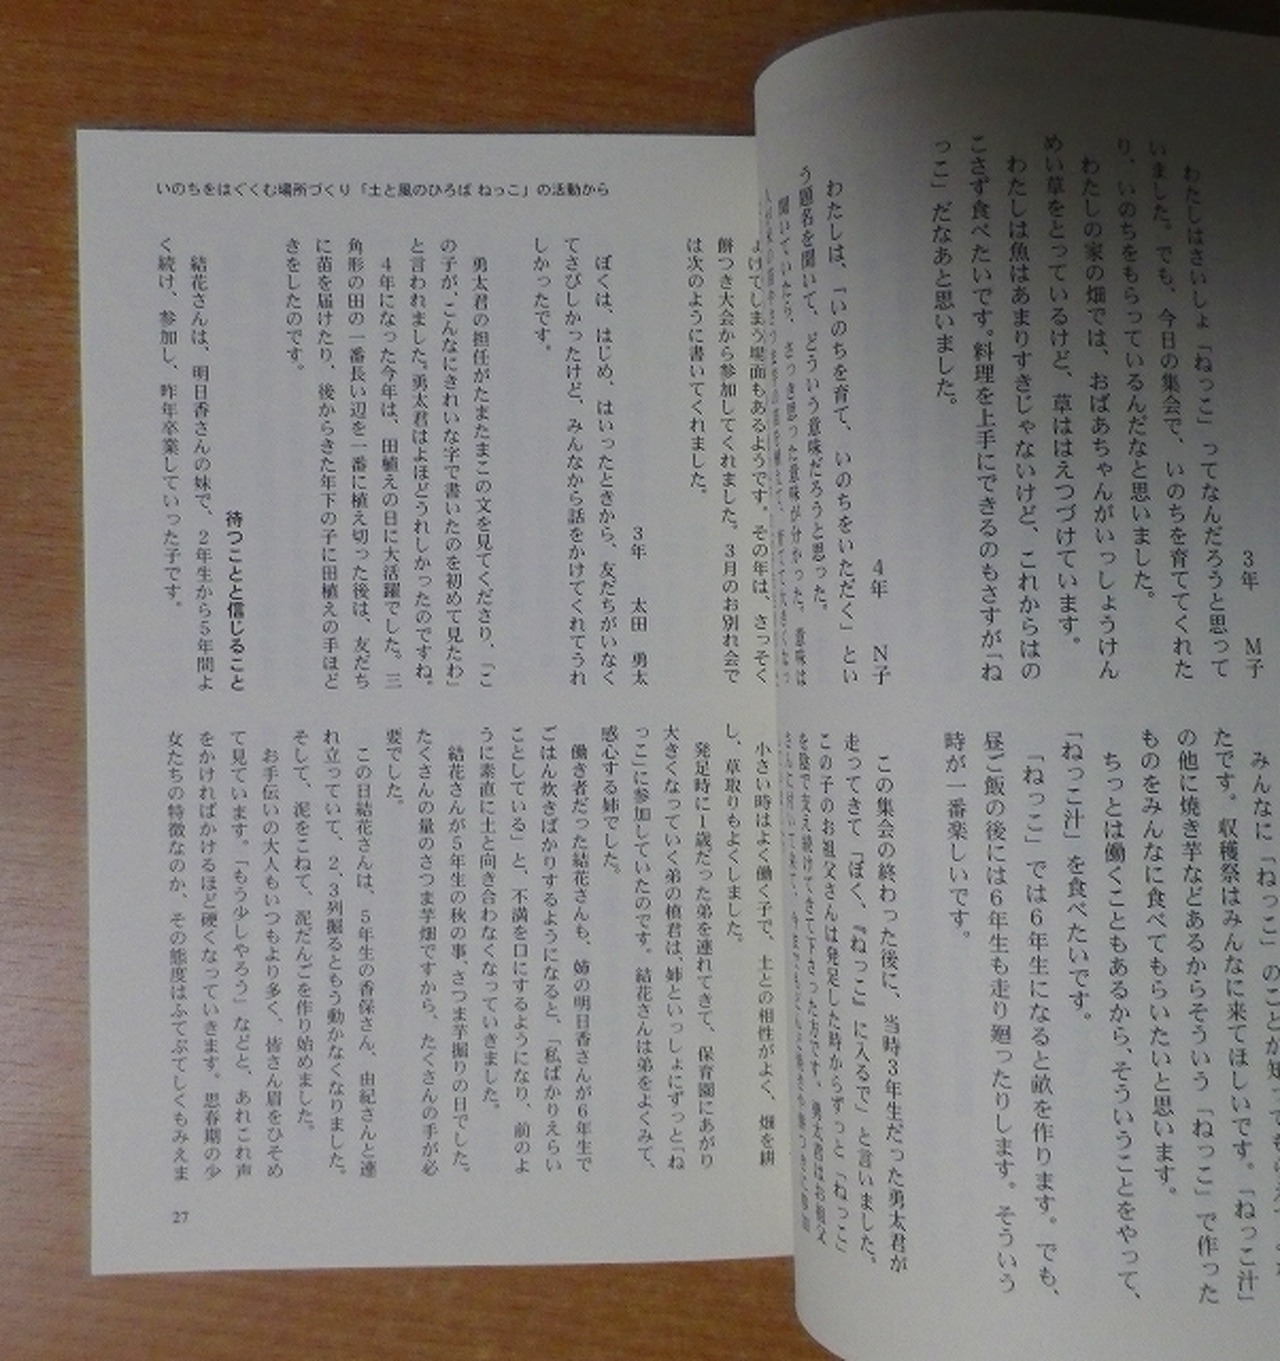 みんなに「ねっこ」のことが
たです。収穫祭はみんなに来てほしいです。「ねっこ汁」
の他に焼き芋などあるからそういう「ねっこ」で作った
ものをみんなに食べてもらいたいと思います。
ちっとは働くこともあるから、そういうことをやって、
「ねっこ汁」を食べたいです。
「ねっこ」では6年生になると畝を作ります。でも、
昼ご飯の後には6年生も走り廻ったりします。そういう
時が一番楽しいです。
3年 M子
わたしはさいしょ「ねっこ」ってなんだろうと思って
いました。でも、今日の集会で、いのちを育ててくれた
り、いのちをもらっているんだなと思いました。
わたしの家の畑では、おばあちゃんがいっしょうけん
めい草をとっているけど、草ははえつづけています。
わたしは魚はあまりすきじゃないけど、これからはの
こさず食べたいです。料理を上手にできるのもさすが「ね
っこ」だなあと思いました。
4年 N子
わたしは、「いのちを育て、いのちをいただく」とい
う題名を聞いて、どういう意味だろうと思った。
聞いていたら、さっき思った意味が分かった。意味は
この集会の終わった後に、当時3年生だった勇太君が
走ってきて「ぼく、『ねっこ』に入るで」と言いました。
この子のお祖父さんは発足した時からずっと「ねっこ」
を陰で支え続けてきて下さった方です。勇太君はお祖父
いのちをはぐくむ場所づくり「土と風のひろば ねっこ」の活動から
よけてしまう場面もあるようです。その年は、さっそく
餅つき大会から参加してくれました。3月のお別れ会で
は次のように書いてくれました。
3年 太田 勇太
ぼくは、はじめ、はいったときから、友だちがいなく
てさびしかったけど、みんなから話をかけてくれてうれ
しかったです。
勇太君の担任がたまたまこの文を見てくださり、「こ
の子が、こんなにきれいな字で書いたのを初めて見たわ」
と言われました。勇太君はよほどうれしかったのですね。
4年になった今年は、田植えの日に大活躍でした。三
角形の田の一番長い辺を一番に植え切った後は、友だち
に苗を届けたり、後からきた年下の子に田植えの手ほど
きをしたのです。
待つことと信じること
結花さんは、明日香さんの妹で、2年生から5年間よ
く続け、参加し、昨年卒業していった子です。
小さい時はよく働く子で、土との相性がよく、畑を耕
し、草取りもよくしました。
発足時に1歳だった弟を連れてきて、保育園にあがり
大きくなっていく弟の槙君は、姉といっしょにずっと「ね
っこ」に参加していたのです。結花さんは弟をよくみて、
感心する姉でした。
働き者だった結花さんも、姉の明日香さんが6年生で
ごはん炊きばかりするようになると、「私ばかりえらい
ことしている」と、不満を口にするようになり、前のよ
うに素直に土と向き合わなくなっていきました。
結花さんが5年生の秋の事、さつま芋掘りの日でした。
たくさんの量のさつま芋畑ですから、たくさんの手が必
要でした。
この日結花さんは、5年生の香保さん、由紀さんと連
れ立っていて、2、3列掘るともう動かなくなりました。
そして、泥をこねて、泥だんごを作り始めました。
お手伝いの大人もいつもより多く、皆さん眉をひそめ
て見ています。「もう少しやろう」などと、あれこれ声
をかければかけるほど硬くなっていきます。思春期の少
女たちの特徴なのか、その態度はふてぶてしくもみえま
27